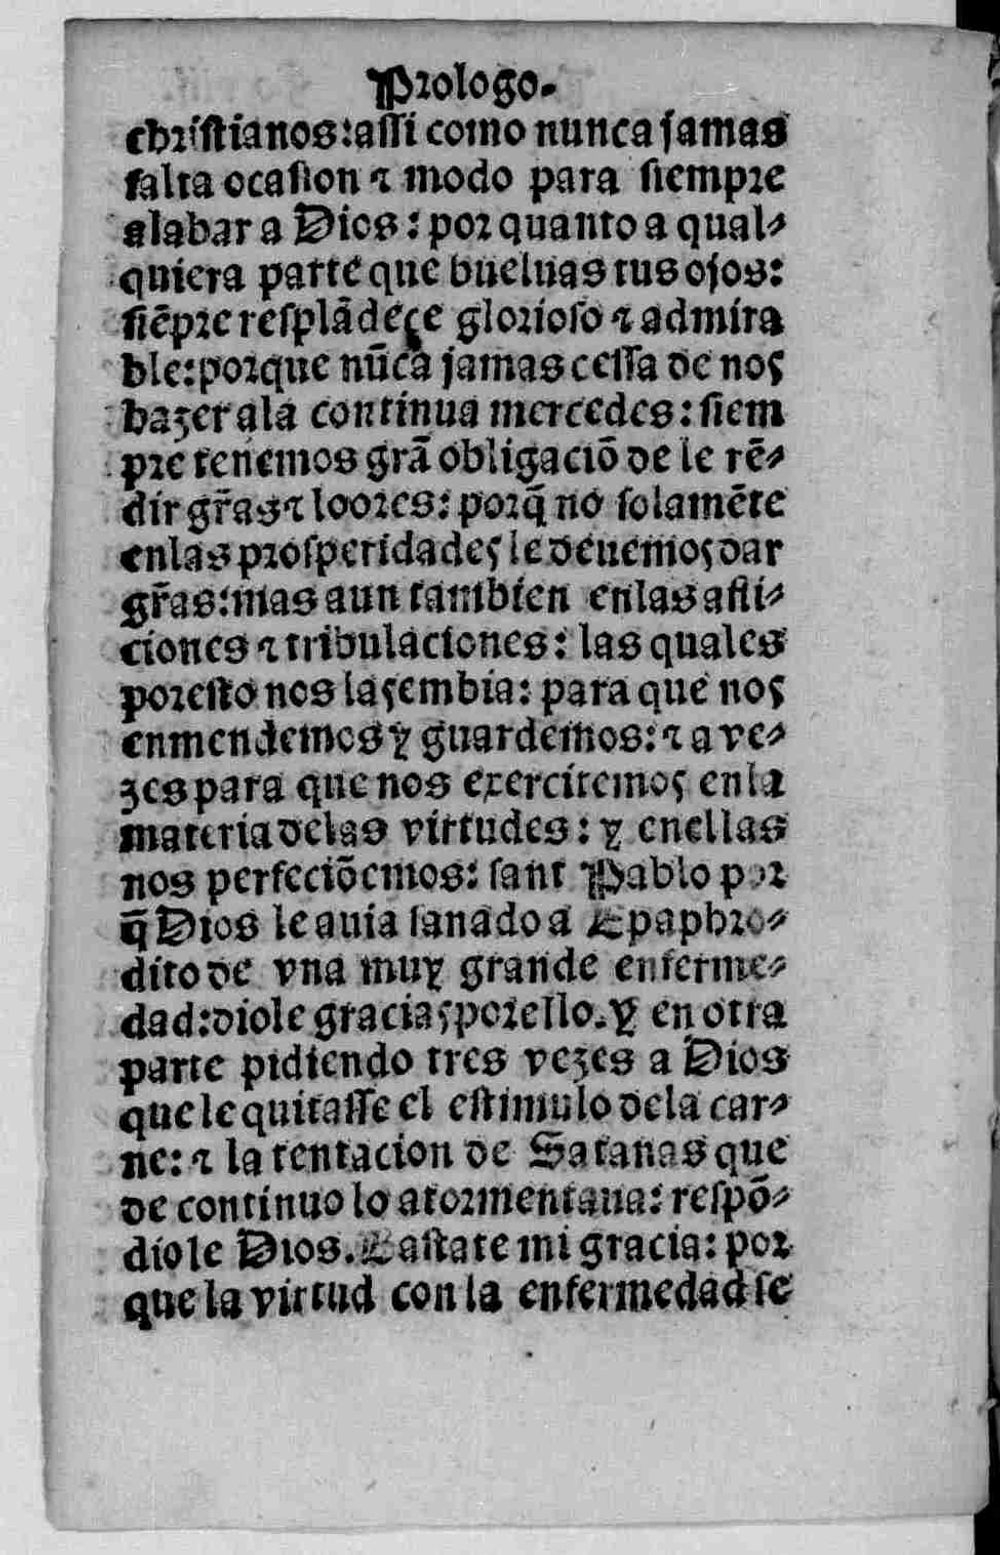 Prologo.
christianos: assi como nunca jamas
falta ocasion ⁊ modo para siempre
alabar a Dios: por quanto a qual-
quiera parte que bueluas tus ojos:
siẽpre resplãdeçe glorioso ⁊ admira
ble: porque nũca jamas cessa de nos
hazer ala continua mercedes: siem
pre tenemos grã obligaciõ de le rẽ-
dir gr̃as ⁊ loores: porq̃ no solamẽte
enlas prosperidades le deuemos dar
gr̃as: mas aun tambien enlas afli-
ciones ⁊ tribulaciones: las quales
por esto nos las embia: para que nos
enmendemos y guardemos: ⁊ a ve-
zes para que nos exercitemos enla
materia delas virtudes: y enellas
nos perfeciõemos: sant Pablo por
q̃ Dios le auia sanado a Epaphro-
dito de vna muy grande enferme-
dad: diole gracias por ello. Y en otra
parte pidiendo tres vezes a Dios
que le quitasse el estimulo dela car-
ne: ⁊ la tentacion de Satanas que
de continuo lo atormentaua: respõ-
diole Dios. Bastate mi gracia: por
que la virtud con la enfermedad se